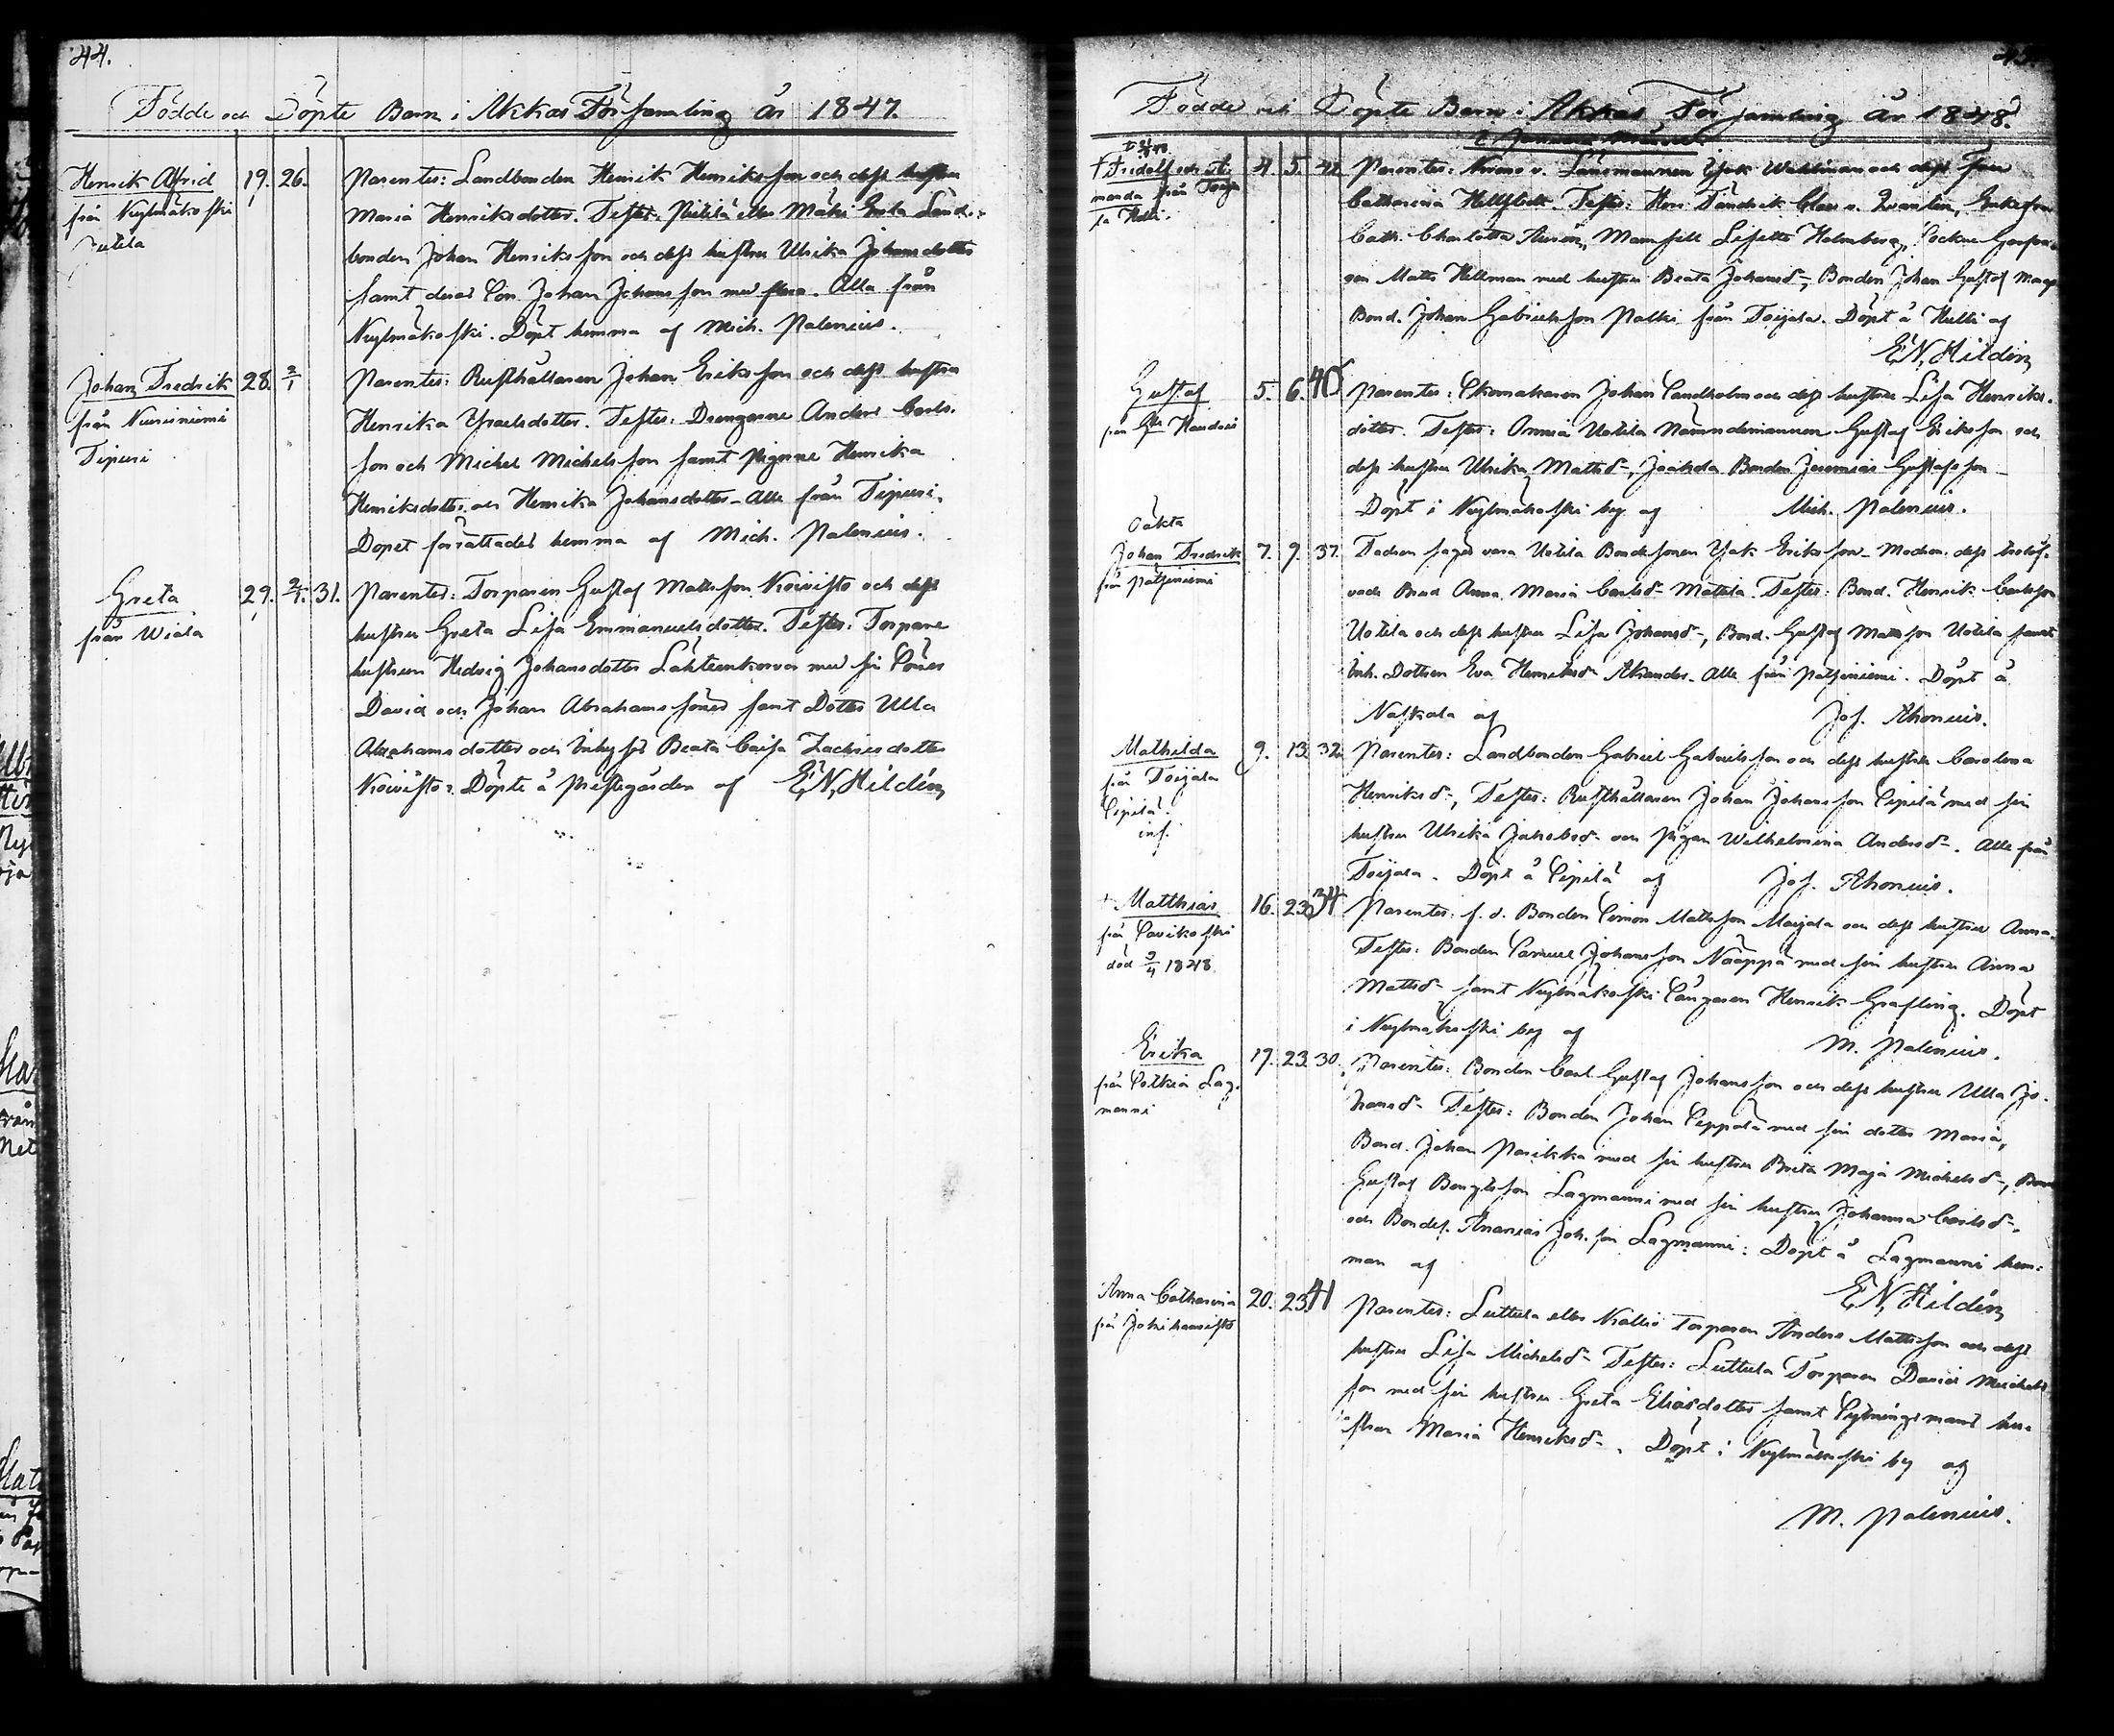 44.
Födde och Döpte Barn i Akkas Församling år 1847.
Henrik Alfrid
från Kylmäkoski
Jutila
19. 26.
Parentes: Landbonden Henrik Henriksson och dess hustru
Maria Henriksdotter. Testes: eller Mäki Enka Land-
bonden Johan Henriksson och dess hustru Ulrika Johansdotter
samt deras Son Johan Johansson med flera. Alla från
Kylmäkoski. Döpt hemma af Mich. Palenius.
Johan Fredrik
från Nuisniemi
Tipuri
28. 2/1
Parentes: Rusthållaren Johan Eriksson och dess hustru
Henrika Ysraelsdotter. Testes: Drengarne Anders Carls-
son och Michel Michelsson samt Pigorne Henrika
Henriksdotter och Henrika Johansdotter - Alle från Tipuri.
Dopet förrättades hemma af Mich. Palenius.
Greta
från Wiala
29. 2/1. 31.
Parentes: Torparen Gustaf Mattsson Koivisto och dess
hustru Greta Lisa Emmanuelsdotter. Testes: Torpare
hustrun Hedvig Johansdotter Lahteenkorva med sin Söner
David och Johan Abrahamssöner samt Dotter Ulla
Abrahamsdotter och Inhyses Beata Caisa Zachrisdotter
Koivisto. Döpte å Prestegården af E.N. Hildén
45.
Födde och Döpte Barn i Akkas Församling år 1848.
i Januari Månad.
† Fridolf och A-
manda från Toija-
la Hulli.
4. 5. 42
Parentes: Krono v. Länsmannen Isak Wahlman och dess Fru
Catharina Hellstedt. Testes: Herr Fändrik Claes v. Qvanten, Enkefru
Cath. Charlotta Aurén, Mamsell Lisette Holmberg, Sockne
Matts Hellman med hustru Beata Johansd-, Bonden Johan Gustaf
Bond. Johan Gabrielsson Palki från Toijala. Döpt å Hulli af
E.N. Hildén
Gustaf
från Handois
5. 6. 40
Parentes: Skomakaren Johan Sandholm och dess hustru Lisa Henriks-
dotter. Testes: Uotila Nämndemannen Gustaf Eriksson och
dess hustru Ulrika Mattsd-, Bonden Jeremias Gustafsson -
Döpt i Kylmäkoski by af Mich. Palenius.
Oäkta
Johan Fredrik
från Patsiniemi
7. 9. 37.
Fadren säges vara Uotila Bondesonen Isak Eriksson - Modren dess trolof-
vade Brud Anna Maria Carlsd- Mattila. Testes: Bond. Henrik Carlsson
Uotila och dess hustru Lisa Johansd-, Bond. Gustaf Mattsson Uotila samt
Inh. Dottren Eva Henriksd- Akander. Alle från Patsiniemi. Döpt å
Naskala af Jos. Ahonius.
Mathilda
från Toijala
Sipilä.
inf.
9. 13. 32.
Parentes: Landbonden Gabriel Gabrielsson och dess hustru Carolina
Henriksd-, Testes: Rusthållaren Johan Johansson Sipilä med sin
hustru Ulrika Jakobsd- och Pigan Wilhelmina Andersd-. Alle från
Toijala. Döpt å Sipilä af Jos. Ahonius.
† Matthias
från Savikoski
död 3/4 1848.
16. 23. 34
Parentes: f. d. Bonden Simon Mattsson Maijala och dess hustru Anna.
Testes: Bonden Samuel Johansson Nääppä med sin hustru Anna
Mattsd- samt Kylmäkoski Sångaren Henrik Grafling. Döpt
i Kylmäkoski by af M. Palenius.
Erika
från Sotkia Lag-
manni
17. 23. 30.
Parentes: Bonden Carl Gustaf Johansson och dess hustru Ulla Jo-
hansd- Testes: Bonden Johan Seppälä med sin dotter Maria,
Bond. Johan Parikka med sin hustru Brita Maja Michelsd-, Bond
Gustaf Bengtsson Lagmanni med sin hustru Johanna Carlsd-,
och Bondes. Ananias Joh.son Lagmanni. Döpt å Lagmanni hem-
man af E.N. Hildén
Anna Catharina
från Jokihaavisto
20. 23. 41
Parentes: Luttula eller Kallio Torparen Anders Mattsson och dess
hustru Lisa Michelsd- Testes: Luttula Torparen David Michels-
son med sin hustru Greta Eliasdotter samt Sytningsmans hu-
strun Maria Henriksd-. Döpt i Kylmäkoski by af
M. Palenius.